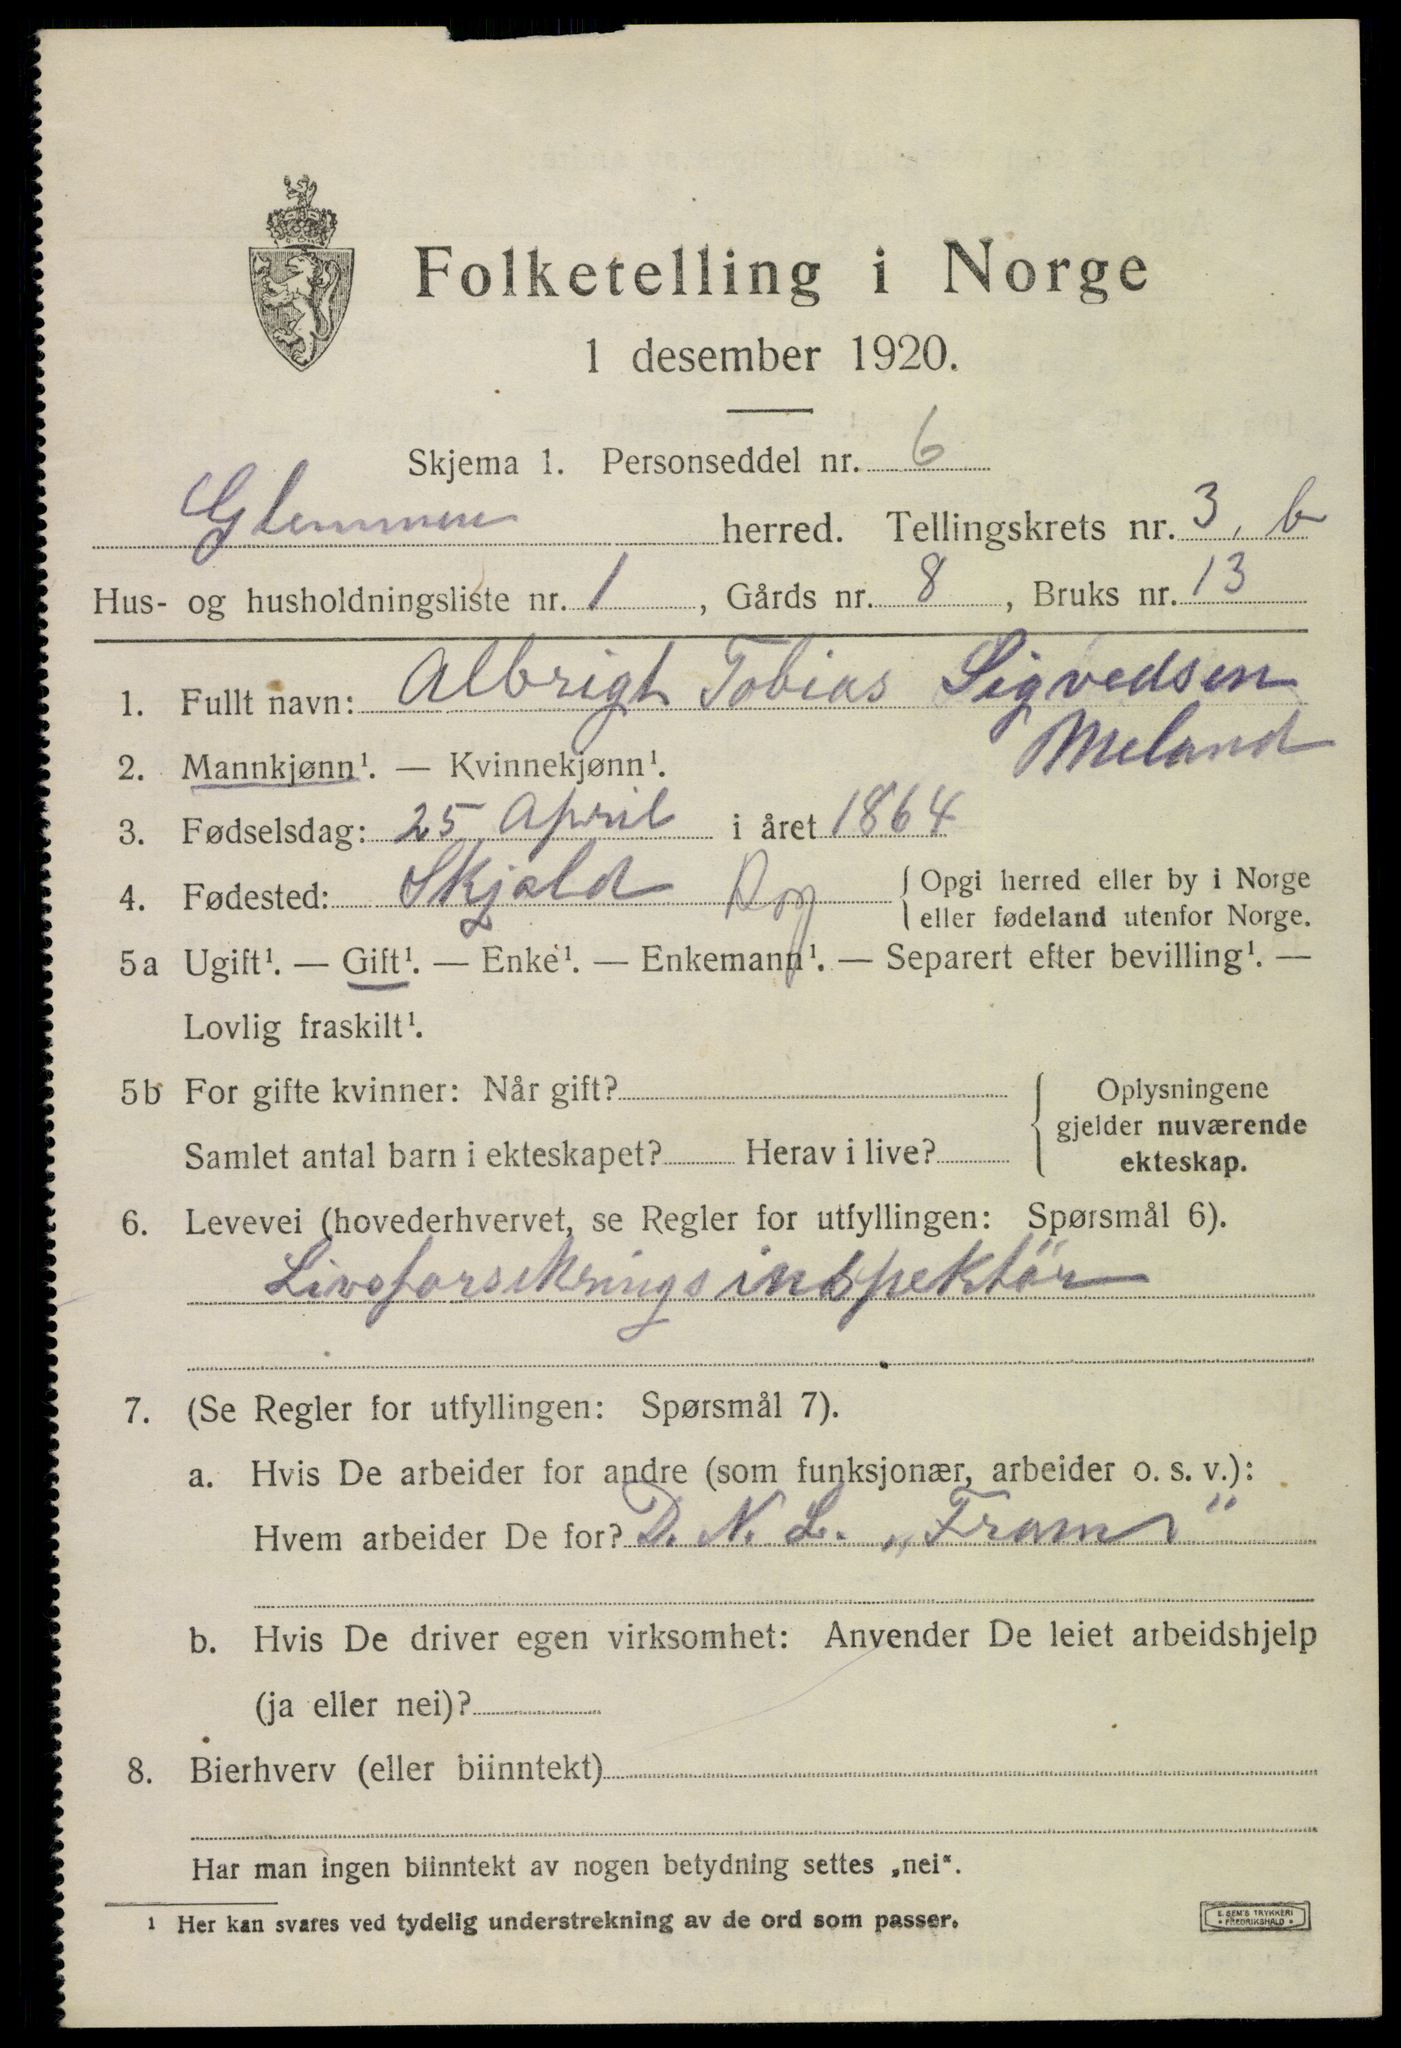 Folketelling i Norge
1 desember 1920.
Skjema 1. Personseddel nr. 6
Glemmen herred. Tellingskrets nr. 3, b
Hus- og husholdningsliste nr. 1, Gårds nr. 8, Bruks nr. 13
1. Fullt navn: Albrigt Tobias Sigvedsen
Meland
2. Mannkjønn¹. — Kvinnekjønn¹.
3. Fødselsdag: 25 April i året 1864
4. Fødested: Skjold Rog { Opgi herred eller by i Norge
eller fødeland utenfor Norge.
5a Ugift¹. — Gift¹. — Enke¹. — Enkemann¹. — Separert efter bevilling¹. —
Lovlig fraskilt¹.
5b For gifte kvinner: Når gift? { Oplysningene
gjelder nuværende
Samlet antal barn i ekteskapet? Herav i live? ekteskap.
6. Levevei (hovederhvervet, se Regler for utfyllingen: Spørsmål 6).
Livsforsikringsinspektör
7. (Se Regler for utfyllingen: Spørsmål 7).
a. Hvis De arbeider for andre (som funksjonær, arbeider o. s. v.):
Hvem arbeider De for? D. N. L. „Fram"
b. Hvis De driver egen virksomhet: Anvender De leiet arbeidshjelp
(ja eller nei)?
8. Bierhverv (eller biinntekt)
Har man ingen biinntekt av nogen betydning settes „nei“.
¹ Her kan svares ved tydelig understrekning av de ord som passer.
E. SEM'S TRYKKERI
• FREDRIKSHALD •